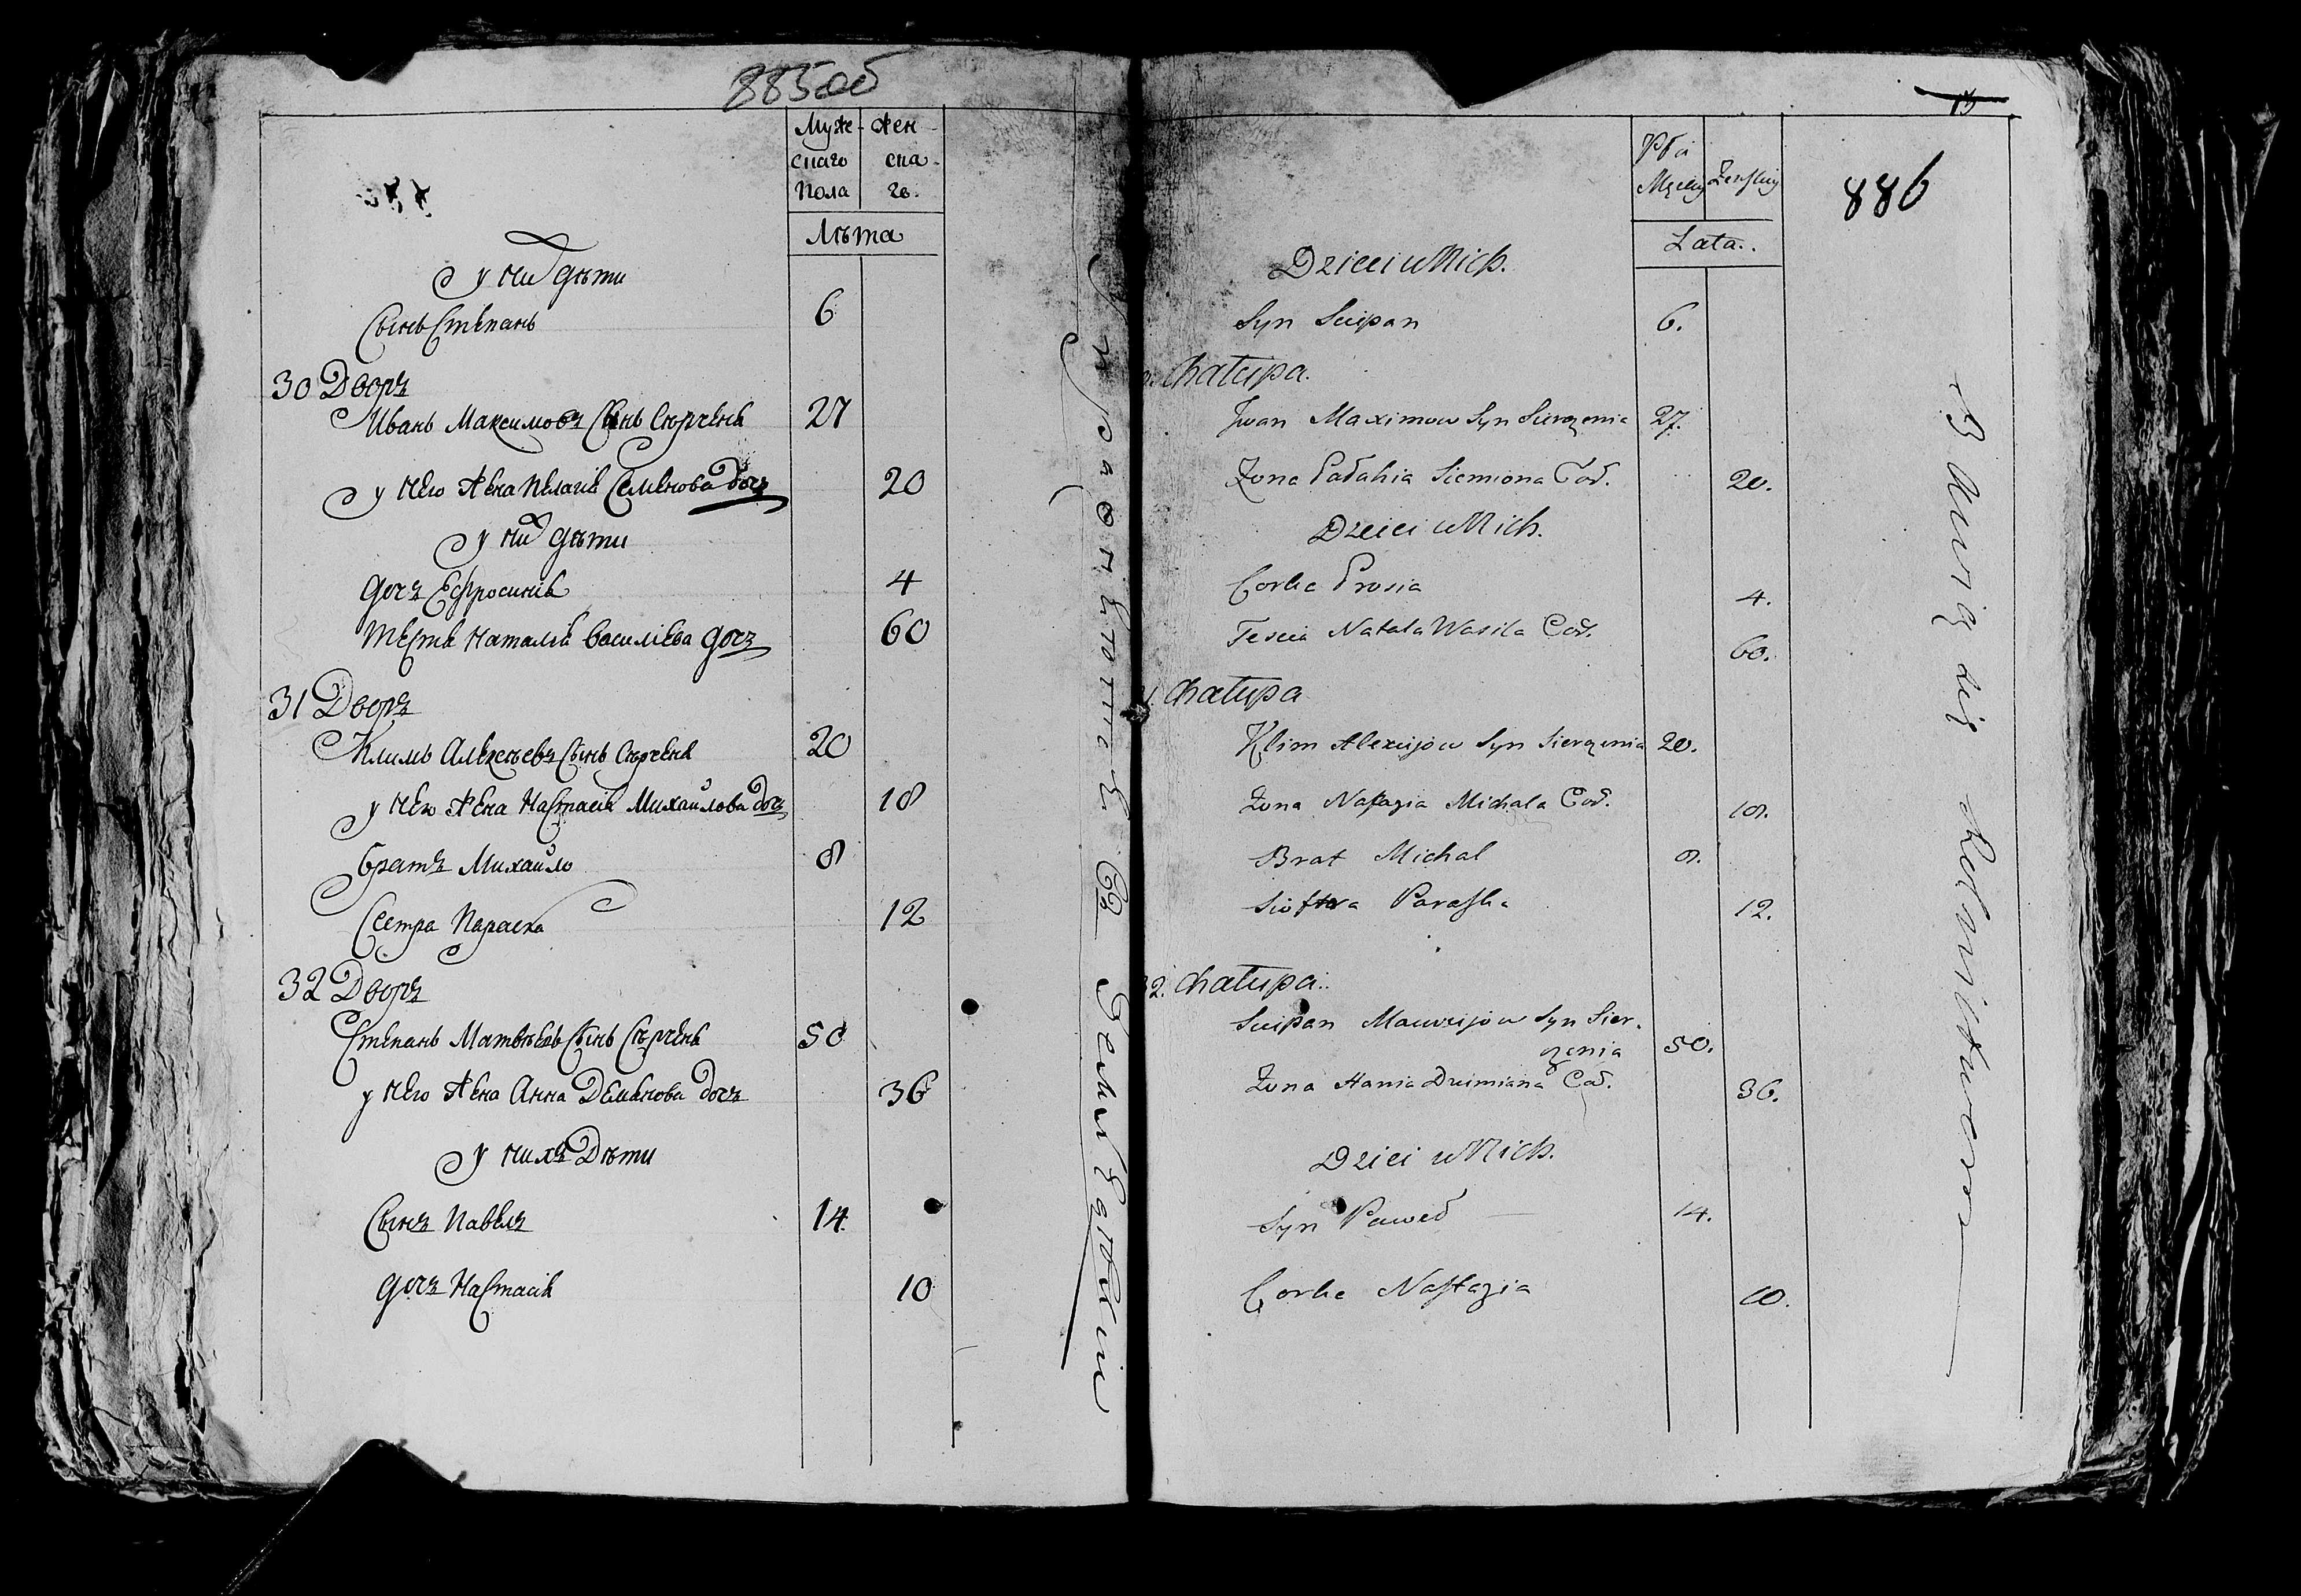 885 об
Муже- Жен-
скаго ска-
пола го.
Лѣта
у них дѣти
Сынъ Степанъ 6
30 Дворъ
Иванъ Максимовъ Сынъ Сѣрченя 27
у него жена Пелагія Семенова дочъ 20
у них дѣти
дочъ Ефросинія 4
теща Наталія Василіева дочъ 60
31 Дворъ
Климъ Алексѣевъ Сынъ Сѣрченя 20
у него жена Настасія Михайлова дочъ 18
братъ Михайло 8
Сестра Параска 12
32 Дворъ
Степанъ Матвѣевъ Сынъ Сѣрченя 50
у него жена Анна Деменова дочъ 36
у нихъ Дѣти
Сынъ Павелъ 14
дочъ Настасія 10
13
886
Płci
Męskiey Zenskiey
Lata.
Dzieci u Nich.
Syn Sciepan 6.
Chałupa.
Jwan Maximow Syn Sierczenia 27.
Zona Pałahia Siemiona Cod. 20.
Dzieci u Nich.
Corka Prosia 4.
Tescia Natala Wasila Cod. 60.
Chałupa
Klim Alexiejow Syn Sierczenia 20.
Zona Nastazia Michala Cod. 18.
Brat Michal 8.
Siostra Paraska 12.
32. Chałupa.
Sciepan Mauwiejow Syn Sier-
czenia 50.
Zona Hania Dziemiana Cod. 36.
Dzieci u Nich.
Syn Paweł 14.
Corka Nastazia 10.